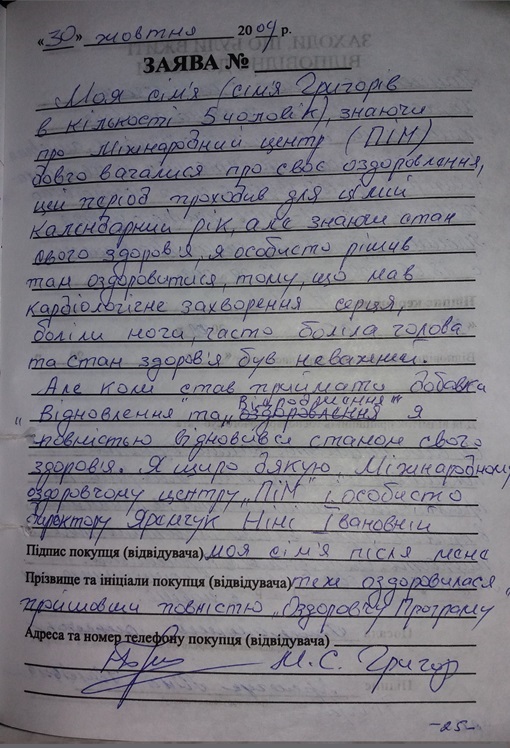 «30» жовтня 2009 р.
ЗАЯВА №
Моя сім'я (сім'я Григорів
в кількості 5 чоловік), знаючи
про Міжнародний центр (ПІМ)
довго вагалися про своє оздоровлення,
цей період проходив для цілий
календарний рік, але знаючи стан
свого здоров'я, я особисто рішив
там оздоровитися, тому, що мав
кардіологічне захворення серця,
боліли нога, часто боліла голова
та стан здоров'я був неважний.
Але коли став приймати добавки
Відродження"
„Відновлення" та „оздоровлення я
повністю відновився станом свого
здоров'я. Я щиро дякую Міжнародному
оздоровчому центру „ПІМ" і особисто
директору Яремчук Ніні Івановній
Підпис покупця (відвідувача) моя сім'я після мене
Прізвище та ініціали покупця (відвідувача) теж оздоровилася
пройшовши повністю „Оздоровчу Програму"
Адреса та номер телефону покупця (відвідувача)
М. С. Григор
-25-